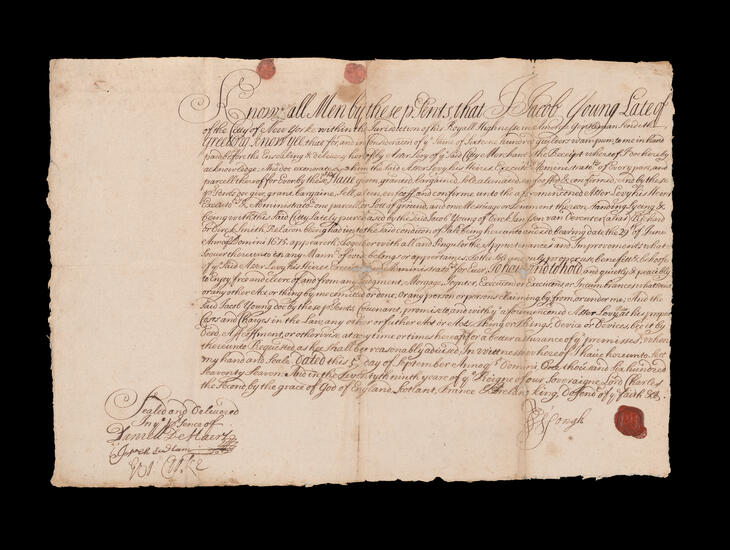 Know all Men by these p:sents, that I Jacob Young Late of
of the Citty of New Yorke within the Jurisdiction of his Royall Highnesse
Greeting. Know Yee, that for, and in consideration of ye Sume of Sixteene hundred guilders wampum to me in hand
paid before the Ensealing & delivery hereof by Asser Levy of ye said Citty Merchant the Receipt whereof I doe hereby
acknowledge, And doe exonerate him the said Asser Levy his Heires Execut: & Administrat: of Every part and
parcell thereof for Ever by these p:sents, Have given, granted, bargained, sold, aliened, enfeoffed & confirmed, And by these
p:sents doe give, grant, bargaine, Sell, alien, enfeoff, and confirme unto the aforementioned Asser Levy his Heires
Execut: & Administrat: one parcell or Lott of ground, and one Messuage or Tenement thereon Standing, Lying &
being with this Said Citty Lately purchased by the said Jacob Young of Dirck Jansen van Deventer (alias) Richard
or Dirck Smith Relacon being had unto the said condition of Sale being hereunto annexed bearing date the 29th of June
Anno Domini 1675. appeareth: Together with all and Singular the Appurtenances and Improvements what
soever thereunto in any Mann: of wise belong or appertaine, To the Sole and proper use, benefitt & behoofe
of ye Said Asser Levy his Heires Execut: & Administrat: for Ever, To have and to hold and quietly & peaceably
to Enjoy free and cleere of and from any Judgment, Morgage, Joynter, Execution or Executions or Incumbrances whatsoever
or any other Act or thing by me committed or done, or any person or persons claiming by, from, or under me. And the
Said Jacob Young doe by these p:sents Covenant, promise to, and with ye aforementioned Asser Levy at his proper
Costs and Charges in the Law, any other or further Act or Acts, Thing or Things, Device or Devices, bee it by
Deed, or otherwise, at any time or times hereafter for a better assurance of ye premises, when
thereunto Requested, as hee Shall bee reasonably advised. In wittnesse whereof I have hereunto Sett
my hand and Seale, Dated this 5th day of September Annoq: Domini One thousand Six hundred
Seaventy Seaven. And in the ninth yeare of ye Reigne of our Soveraigne Lord Charles
the Second, by the grace of God of England, Scotland, France & Ireland King, Defend: of ye faith &c.
Sealed and Delivered
In ye p:sence of